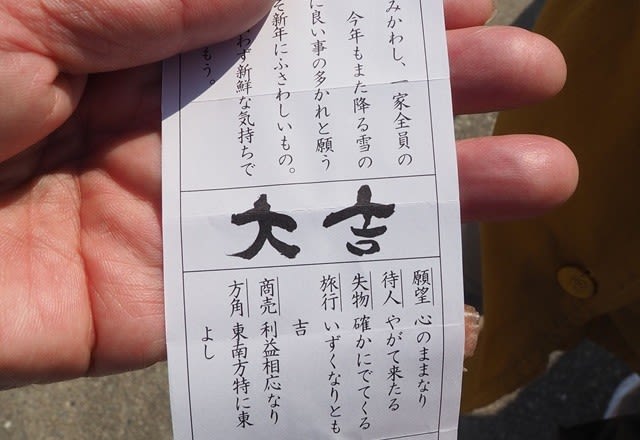 みかわし、一家全員の
今年もまた降る雪の
に良い事の多かれと願う
そ新年にふさわしいもの。
わず新鮮な気持ちで
もう。
大吉
願望 心のままなり
待人 やがて来たる
失物 確かにでてくる
旅行 いずくなりとも
吉
商売 利益相応なり
方角 東南方特に東
よし